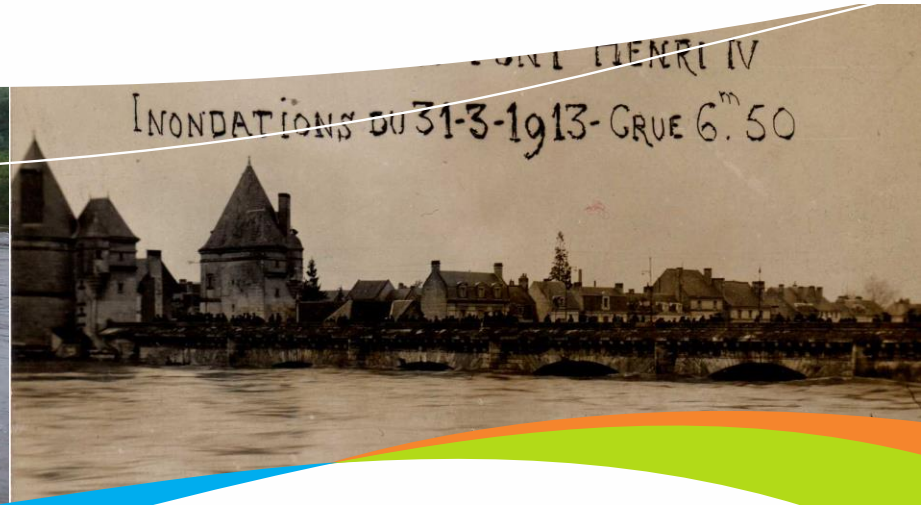 PONT HENRI IV
INONDATIONS DU 31-3-1913- CRUE 6.m 50